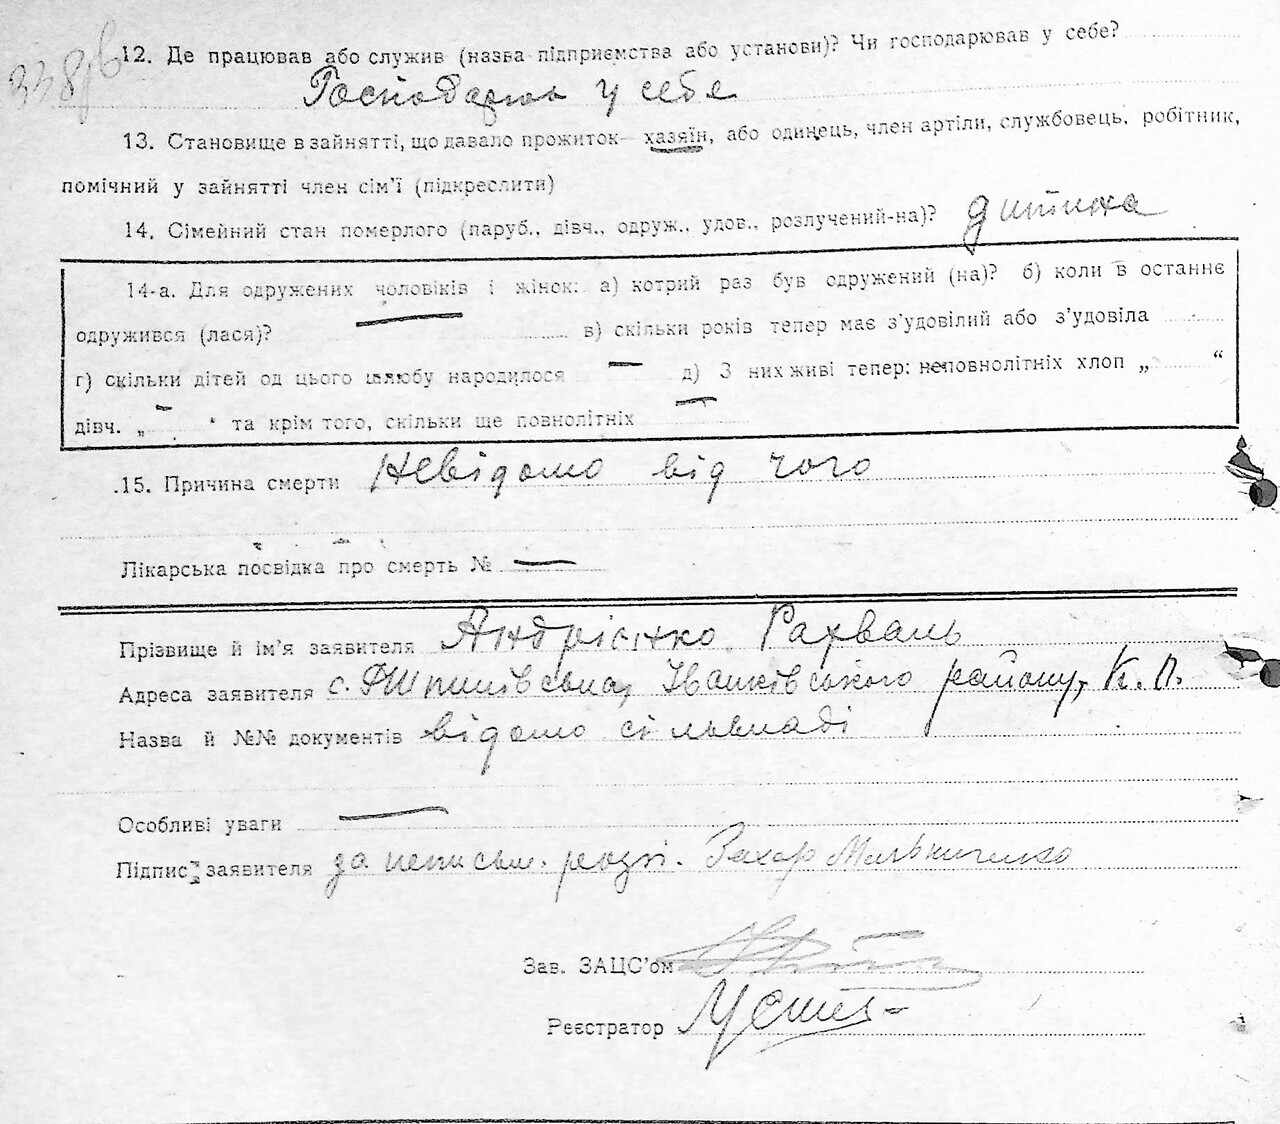 338
12. Де працював або служив (назва підприємства або установи)? Чи господарював у себе?
Господарював у себе
13. Становище в зайнятті, що давало прожиток— хазяїн, або одинець, член артіли, службовець, робітник,
помічний у зайнятті член сім'ї (підкреслити)
14. Сімейний стан померлого (паруб., дівч., одруж., удов., розлучений-на)? дитина
14-а. Для одружених чоловіків і жінок: а) котрий раз був одружений (на)? б) коли в останнє
одружився (лася)? — в) скільки років тепер має з'удовілий або з'удовіла
г) скільки дітей од цього шлюбу народилося — д) З них живі тепер: неповнолітніх хлоп „ “
дівч. „ — “ та крім того, скільки ще повнолітніх —
15. Причина смерти Невідомо від чого
Лікарська посвідка про смерть № —
Прізвище й ім'я заявителя Андрієнко
Адреса заявителя с. Іванківського району, К. П.
Назва й №№ документів відомо сільвладі
Особливі уваги —
Підпис заявителя за неписьм. розп. Захар Мельниченко
Зав. ЗАЦС'ом
Реєстратор